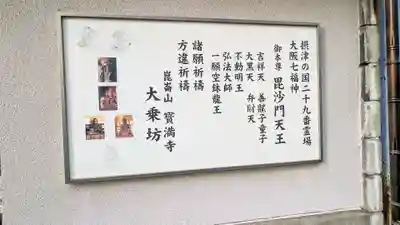 摂津の国二十九番霊場
大阪七福神
御本尊 毘沙門天王
吉祥天 善膩子童子
大黒天 弁財天
不動明王
弘法大師
一願空鉢龍王
諸願祈祷
方違祈祷
崑崙山 寳満寺
大乗坊